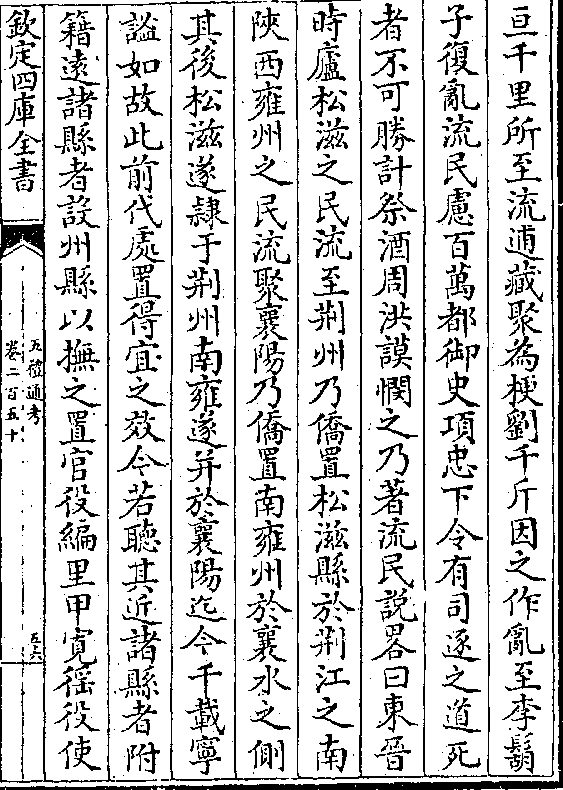 亘千里所至流逋藏聚為梗劉千斤因之作亂至李鬍
子復亂流民慮百萬都御史項忠下令有司逐之道死
者不可勝計祭酒周洪謨憫之乃著流民說畧曰東晉
時廬松滋之民流至荆州乃僑置松滋縣於荆江之南
陜西雍州之民流聚襄陽乃僑置南雍州於襄水之側
其後松滋遂隸于荆州南雍遂并於襄陽迄今千載寧
謐如故此前代處置得宜之效今若聽其近諸縣者附
籍遠諸縣者設州縣以撫之置官役編里甲寛徭役使
欽定四庫全書
五禮通考
卷二百五十
五六